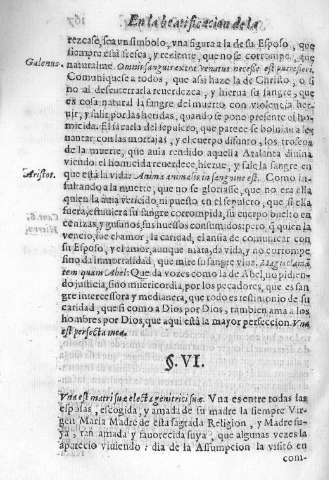 En la beatificacion de la
rezcase, sea vn simbolo, vna figura a la de su Esposo, que
siempre està fresca, y reziente, que no se corrompe, que
Galenus.
naturalmē. Omnis sanguis extra venatus necesse est putrefieri.
Comuniquese a todos, que assi haze la de Christo, o si
no al desenterrarla reuerdezca, y hierua su sangre, que
es cosa natural la sangre del muerto con violencia heruir,
y salir por las heridas, quando se pone presente el homicida.
El sacarla del sepulcro, que parece se boluian a leuantar
con las mortajas, y el cuerpo difunto, los trofeos
de la muerte, que auia rendido aquella Atalanca diuina
viendo el homicida reuerdece, hierue, y sale la sangre en
Aristot.
que està la vida: Anima animalis in sanguine est. Como insultando
a la muerte, que no se gloriasse, que no era ella
quien la auia vencido, ni puesto en el sepulcro, que si ella
fuera, estuuiera su sangre corrompida, su cuerpo buelto en
cenizas, y gusanos, sus huessos consumidos: pero q̃ quien la
vencio, fue el amor, la caridad, el ansia de comunicar con
su Esposo, y el amor, aunque mata, da vida, y no corrompe,
sino da inmortalidad, que mire su sangre viua.
tem quam Abel: Que da vozes como la de Abel, no pidiendo
justicia, sino misericordia, por los pecadores, que es sangre
intercessora y medianera, que todo es testimonio de su
caridad, que si como a Dios por Dios, tambien ama a los
hombres por Dios, que aqui està la mayor perfeccion. Vna
est perfecta mea.
§. VI.
Vna est matri suæ electa genitrici suæ. Vna es entre todas las
esposas, escogida, y amada de su madre la siempre Virgen
Maria Madre de esta sagrada Religion, y Madre suya,
tan amada y fauorecida suya, que algunas vezes la
aparecio viuiendo: dia de la Assumpcion la visitò en
com-